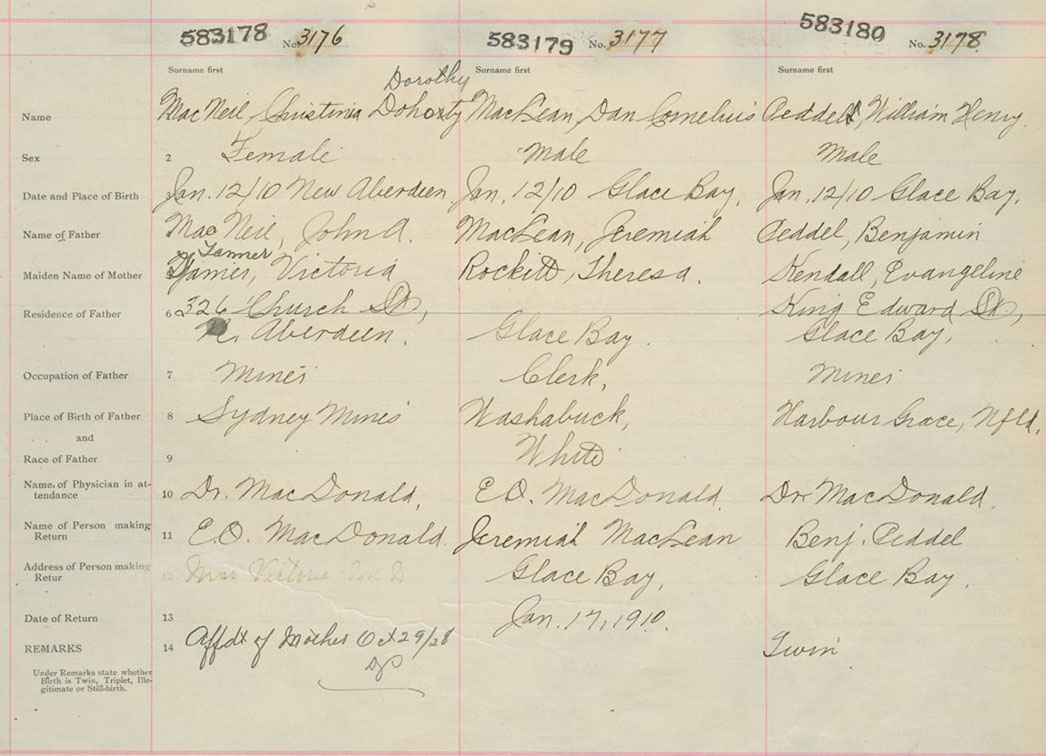 583178 No. 3176 583179 No. 3177 583180 No. 3178
Surname first Surname first Surname first
Dorothy
Name MacNeil, Christina Dohorty MacLean, Dan Cornelius Peddel, William Henry
Sex 2 Female Male Male
Date and Place of Birth 3 Jan. 12/10 New Aberdeen Jan. 12/10 Glace Bay. Jan. 12/10 Glace Bay.
Name of Father MacNeil, John A. MacLean, Jeremiah Peddel, Benjamin
Tanner
Maiden Name of Mother 5 Victoria Rockett, Theresa. Kendall, Evangeline
Residence of Father 6 326 Church St, King Edward St,
N. Aberdeen. Glace Bay. Glace Bay.
Occupation of Father 7 Miner Clerk, Miner
Place of Birth of Father 8 Sydney Mines Washabuck, Harbour Grace, Nfld.
and
Race of Father 9 White
Name of Physician in at-
tendance 10 Dr. MacDonald, E.O. MacDonald. Dr MacDonald.
Name of Person making
Return 11 E.O. MacDonald. Jeremiah MacLean Benj. Peddel
Address of Person making
Retur Mrs Victoria Glace Bay, Glace Bay.
Date of Return 13 Jan. 17, 1910.
REMARKS 14 Affdt of Mother Oct 29/28 Twin
Under Remarks state whether
Birth is Twin, Triplet, Ille-
gitimate or Still-birth.